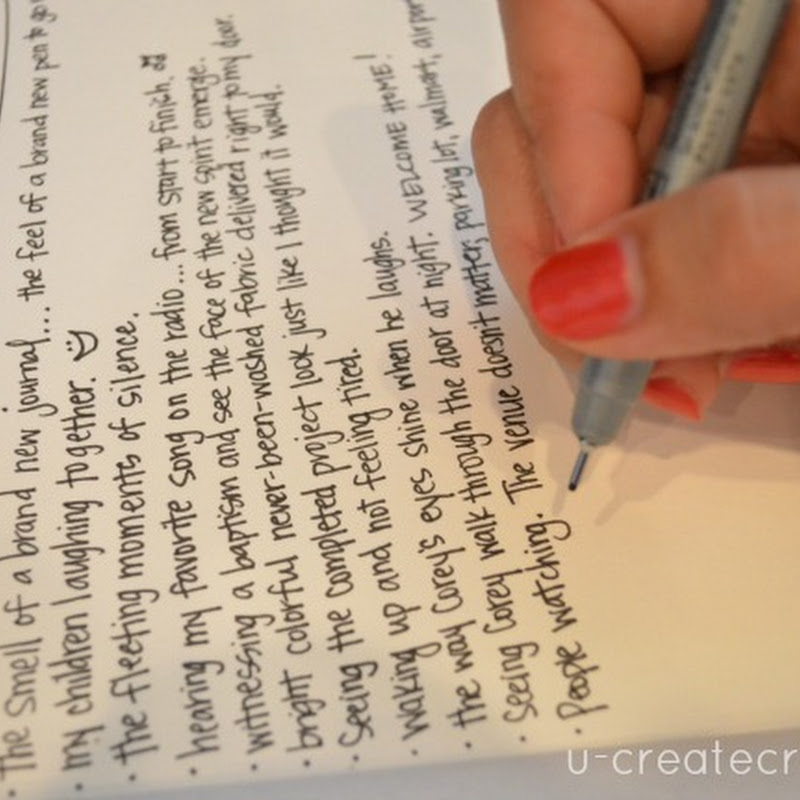 · The smell of a brand new journal... the feel of a brand new pen to go
· my children laughing together.
· the fleeting moments of silence.
· hearing my favorite song on the radio... from start to finish.
· witnessing a baptism and see the face of the new spirit emerge.
· bright colorful never-been-washed fabric delivered right to my door.
· Seeing the completed project look just like I thought it would.
· Waking up and not feeling tired.
· the way Corey's eyes shine when he laughs.
· Seeing Corey walk through the door at night. WELCOME HOME!
· People watching. The venue doesn't matter; parking lot, walmart, airpor
u-createcr